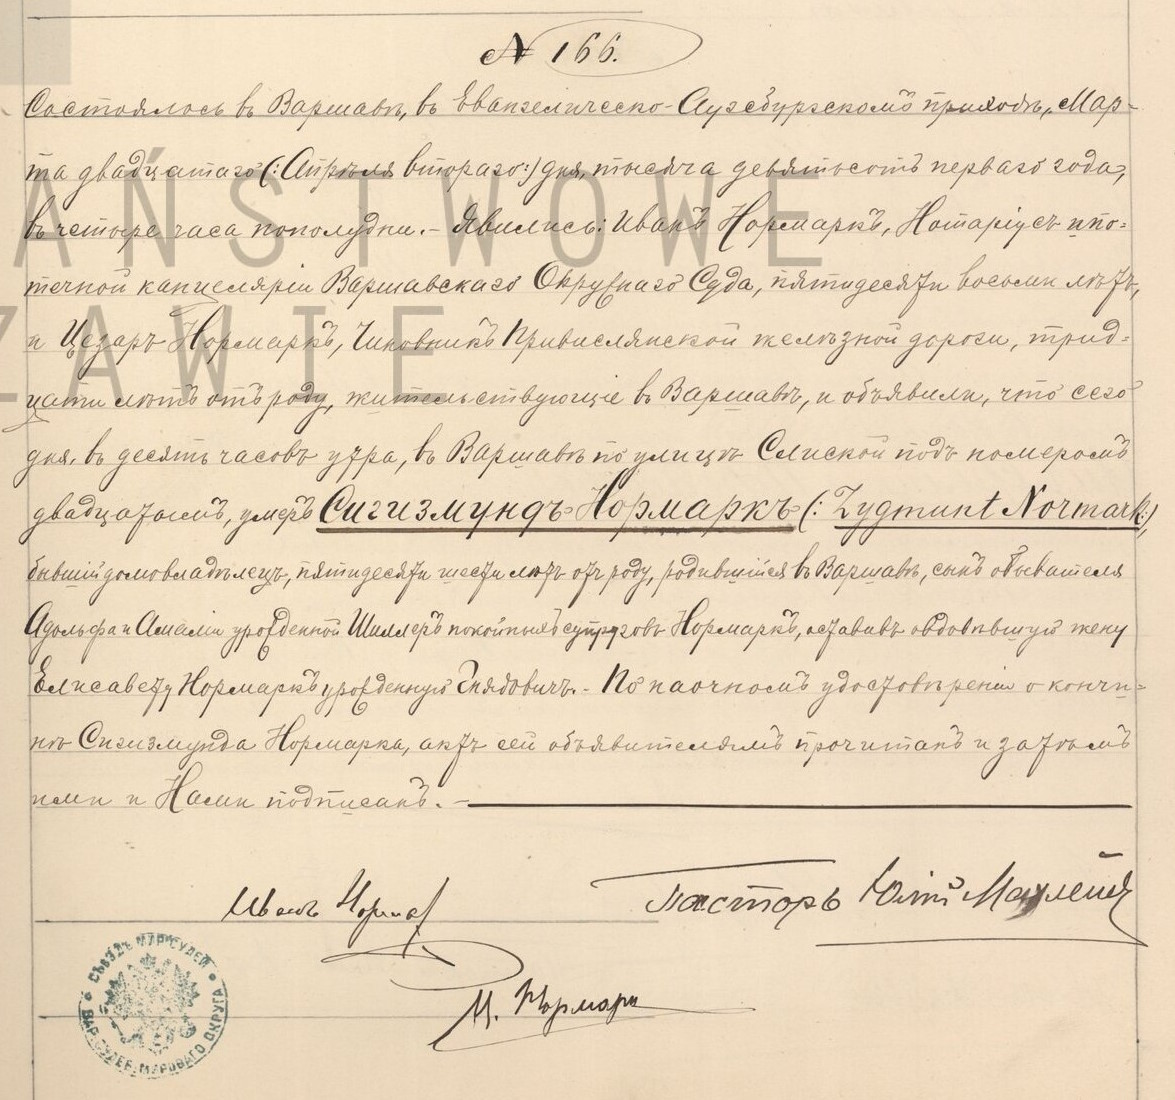 № 166.
Состоялось въ Варшавѣ, въ Евангелическо-Аугсбургскомъ приходѣ, Мар-
та двадцатаго (: Апрѣля втораго :) дня, тысяча девятьсотъ перваго года,
въ четыре часа пополудни. – Явились: Иванъ Нормаркъ, Нотаріусъ ипо-
течной канцеляріи Варшавскаго Окружнаго Суда, пятидесяти восьми лѣтъ,
и Цезарь Нормаркъ, Чиновникъ Привислянской желѣзной дороги, трид-
цати лѣтъ отъ роду, жительствующіе въ Варшавѣ, и объявили, что сего
дня, въ десять часовъ утра, въ Варшавѣ по улицѣ Слиской подъ номеромъ
двадцатымъ, умеръ Сигизмундъ Нормаркъ (: Zygmunt Normark :)
бывшій домовладѣлецъ, пятидесяти шести лѣтъ отъ роду, родившійся въ Варшавѣ, сынъ обывателя
Адольфа и Амаліи урожденной Шиллеръ покойныхъ супруговъ Нормаркъ, оставивъ овдовѣвшую жену
Елисавету Нормаркъ урожденную Гнядовичъ. – По наочномъ удостовѣреніи о кончи-
нѣ Сигизмунда Нормарка, актъ сей объявителямъ прочитанъ и затѣмъ
ими и Нами подписанъ. –
Иванъ Нормаркъ Пасторъ Юлій
Ц. Нормаркъ
СЪѢЗДЪ МИР. СУДЕЙ ВАР. СУДЕБ. МИРОВАГО ОКРУГА
PAŃSTWOWE
WARSZAWIE